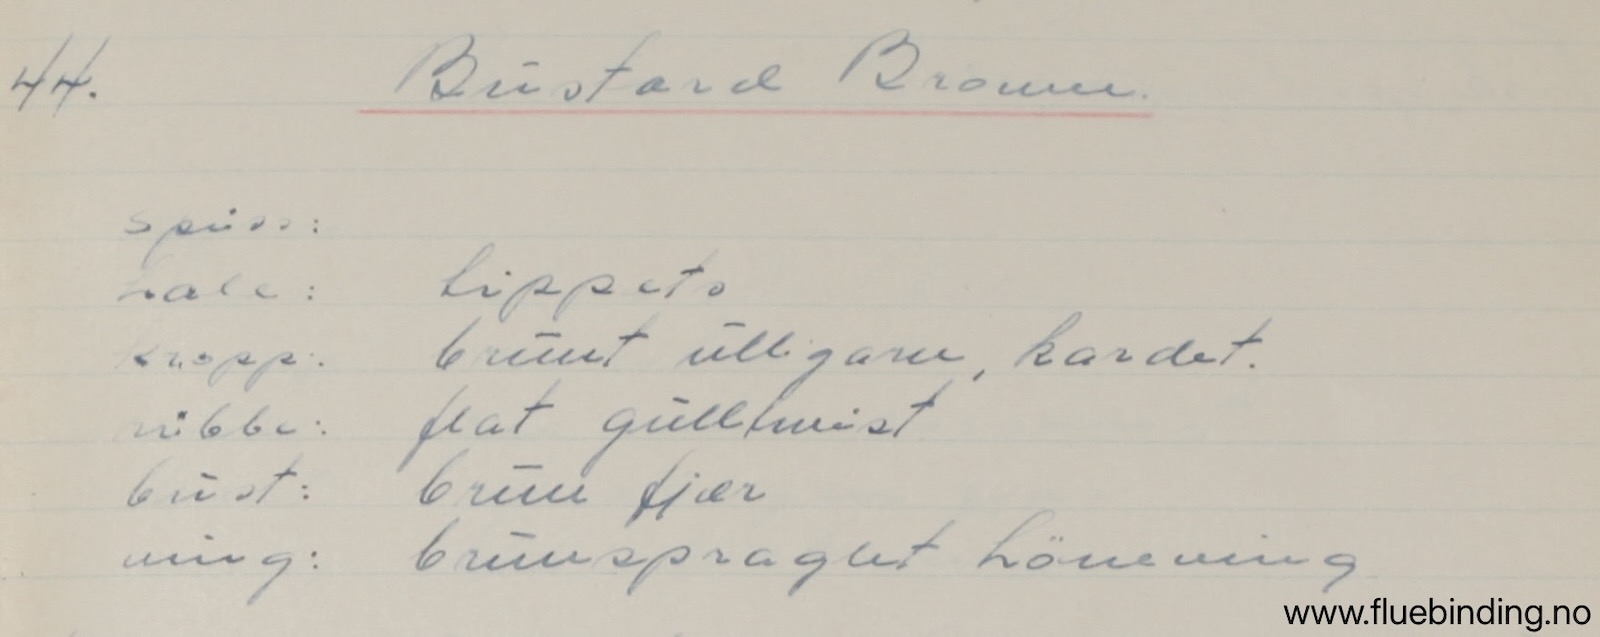 44. Bustard Brown.
spiss:
hale: tippets
kropp: brunt ullgarn, kardet.
ribbe: flat gulltwist
bust: brun fjær
ving: brunspraglet höneving
www.fluebinding.no